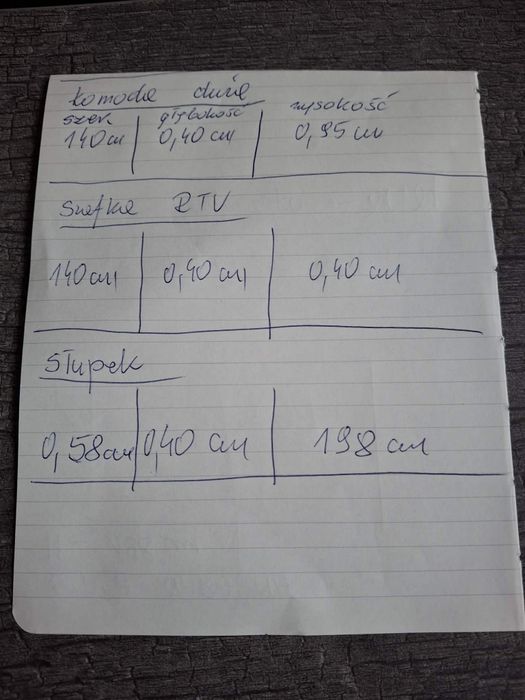 Komoda duża
szer głębokość wysokość
140cm 0,40 cm 0,95 cm
Szafka RTV
140cm 0,40 cm 0,40 cm
Słupek
0,58cm 0,40 cm 198 cm